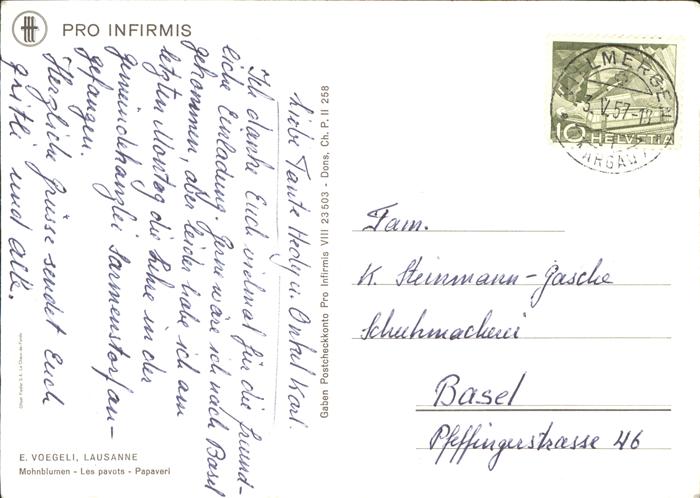 PRO INFIRMIS
Liebe Tante Hedy u. Onkel Karl.
Ich danke Euch vielmal für die freund-
liche Einladung. Gerne wäre ich nach Basel
gekommen, aber leider habe ich am
letzten Montag die Lehre in der
Gemeindekanzlei Sarmenstorf an-
gefangen.
Herzliche Grüsse sendet Euch
Gritli und alle.
Gaben Postcheckkonto Pro Infirmis VIII 23503 - Dons, Ch. P. II 258
VILLMERGEN
3. V. 57-18
(AARGAU)
10 HELVETIA
Fam.
K. Steinmann-Gasche
Schuhmacherei
Basel
Pfeffingerstrasse 46
E. VOEGELI, LAUSANNE
Mohnblumen - Les pavots - Papaveri